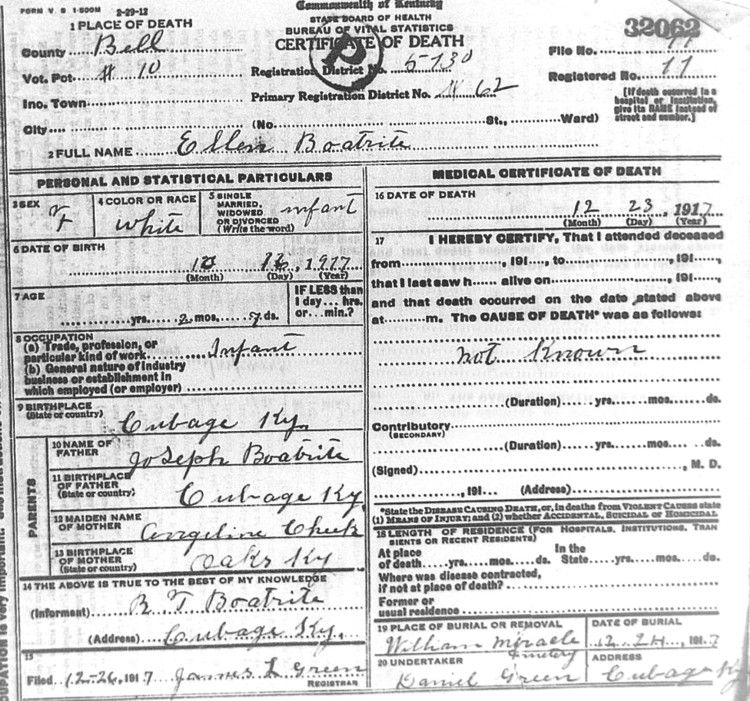 FORM V. S 1-500M 2-29-12
Commonwealth of Kentucky
STATE BOARD OF HEALTH
BUREAU OF VITAL STATISTICS
CERTIFICATE OF DEATH
32062
1 PLACE OF DEATH
County Bell
Vot. Pct. # 10
Inc. Town
City (No. St., Ward)
Registration District No. 5-130
Primary Registration District No. 62
File No. 11
Registered No. 11
[If death occurred in a hospital or institution, give its NAME instead of street and number.]
2 FULL NAME Ellen Boatrite
PERSONAL AND STATISTICAL PARTICULARS
3 SEX F
4 COLOR OR RACE white
5 SINGLE MARRIED, WIDOWED OR DIVORCED (Write the word) infant
6 DATE OF BIRTH
10 16, 1917
(Month) (Day) (Year)
7 AGE
yrs. 2 mos. 7 ds.
IF LESS than 1 day... hrs. or... min.?
8 OCCUPATION
(a) Trade, profession, or particular kind of work Infant
(b) General nature of industry
business or establishment in
which employed (or employer)
9 BIRTHPLACE
(State or country) Cubage Ky.
PARENTS
10 NAME OF FATHER Joseph Boatrite
11 BIRTHPLACE OF FATHER
(State or country) Cubage Ky
12 MAIDEN NAME OF MOTHER Angeline Cheek
13 BIRTHPLACE OF MOTHER
(State or country) Oaks Ky
14 THE ABOVE IS TRUE TO THE BEST OF MY KNOWLEDGE
(Informant) B T Boatrite
(Address) Cubage Ky.
15
Filed 12-26, 1917 James L Green
REGISTRAR
MEDICAL CERTIFICATE OF DEATH
16 DATE OF DEATH
12 23, 1917
(Month) (Day) (Year)
17 I HEREBY CERTIFY, That I attended deceased
from , 191 , to , 191 ,
that I last saw h alive on , 191 ,
and that death occurred on the date stated above
at m. The CAUSE OF DEATH* was as follows:
not Known
(Duration) yrs. mos. ds.
Contributory
(SECONDARY)
(Duration) yrs. mos. ds.
(Signed) , M. D.
, 191 (Address)
*State the DISEASE CAUSING DEATH, or, in deaths from VIOLENT CAUSES state
(1) MEANS OF INJURY; and (2) whether ACCIDENTAL, SUICIDAL or HOMICIDAL
18 LENGTH OF RESIDENCE (FOR HOSPITALS, INSTITUTIONS, TRAN
SIENTS OR RECENT RESIDENTS)
At place of death yrs. mos. ds. In the State yrs. mos. ds.
Where was disease contracted,
if not at place of death?
Former or
usual residence
19 PLACE OF BURIAL OR REMOVAL
William Miracle
DATE OF BURIAL
12-24, 1917
20 UNDERTAKER
Daniel Green
ADDRESS
Cubage Ky